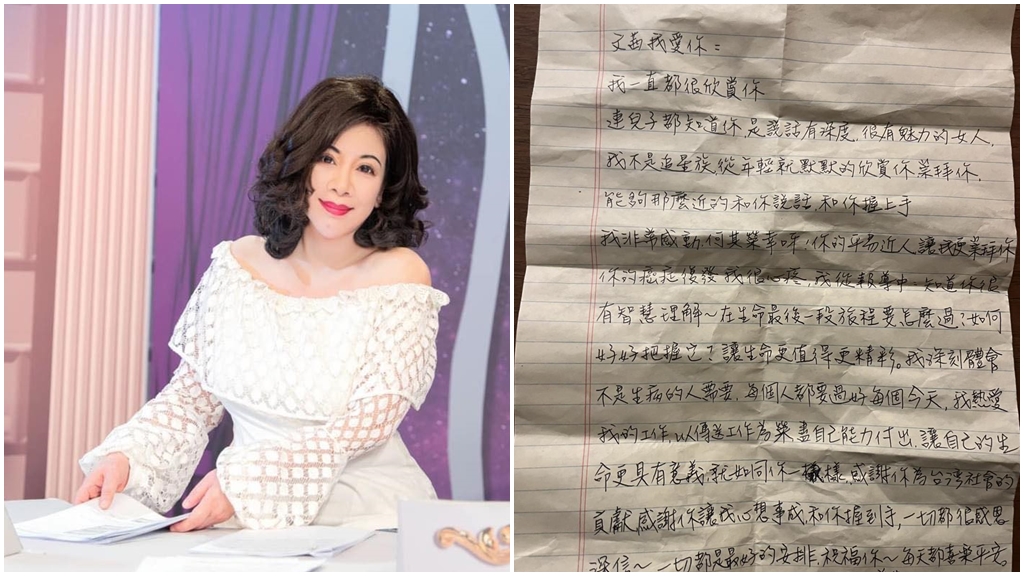 文茜我愛你：
我一直都很欣賞你
連兒子都知道你是說話有深度，很有魅力的女人，
我不是追星族從年輕就默默的欣賞你崇拜你．
能夠那麼近的和你說話，和你握上手
我非常感動何其榮幸呀，你的平易近人讓我更崇拜你
你的癌症復發我很心疼，我從報導中，知道你很
有智慧理解～在生命最後一段旅程要怎麼過？如何
好好把握它？讓生命更值得更精彩。我深刻體會
不是生病的人需要，每個人都要過好每個今天，我熱愛
我的工作，以傳送工作為榮盡自己能力付出，讓自己的生
命更具有意義，就如同你一樣，感謝你為台灣社會的
貢獻，感謝你讓我心想事成，和你握到手，一切都很感恩
深信～一切都是最好的安排，祝福你～每天都喜樂平安